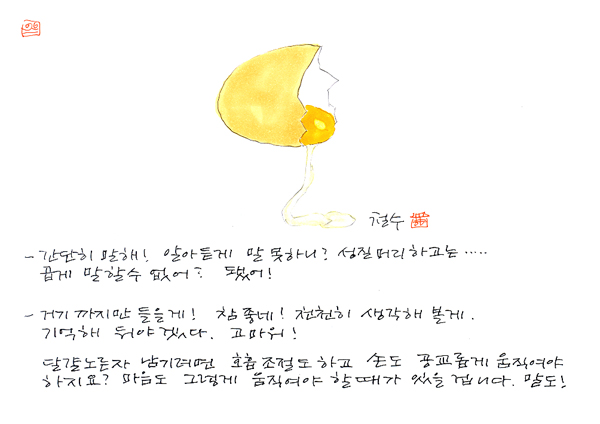 철수
- 간단히 말해! 알아듣게 말 못하니? 성질머리하고는.....
곱게 말할수 없어? 됐어!
- 거기 까지만 들을게! 참 좋네! 천천히 생각해 볼게.
기억해 둬야 겠다. 고마워!
달걀노른자 남기려면 호흡조절도하고 손도 공교롭게 움직여야
하지요? 마음도 그렇게 움직여야 할때가 있을 겁니다. 말도!